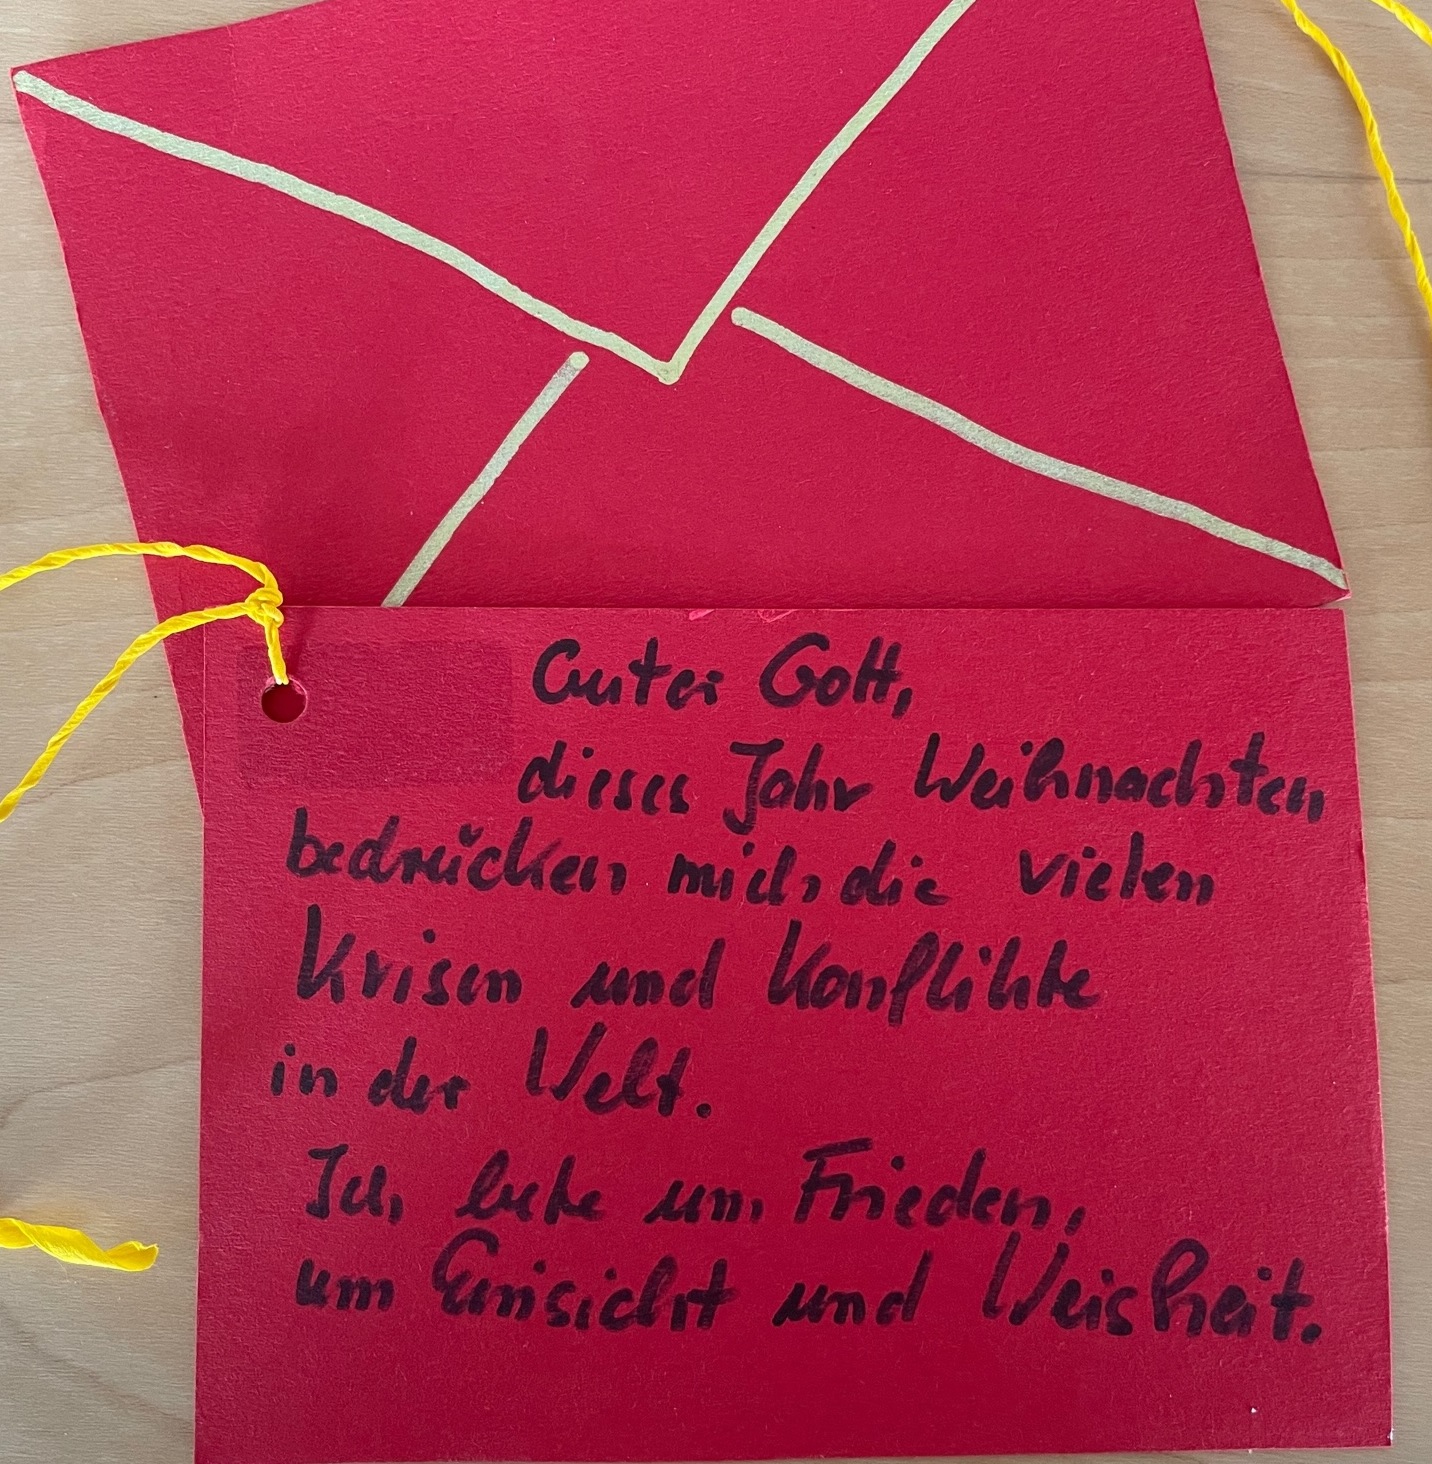 Guter Gott,
dieses Jahr Weihnachten
bedrücken mich die vielen
Krisen und Konflikte
in der Welt.
Ich bete um Frieden,
um Einsicht und Weisheit.